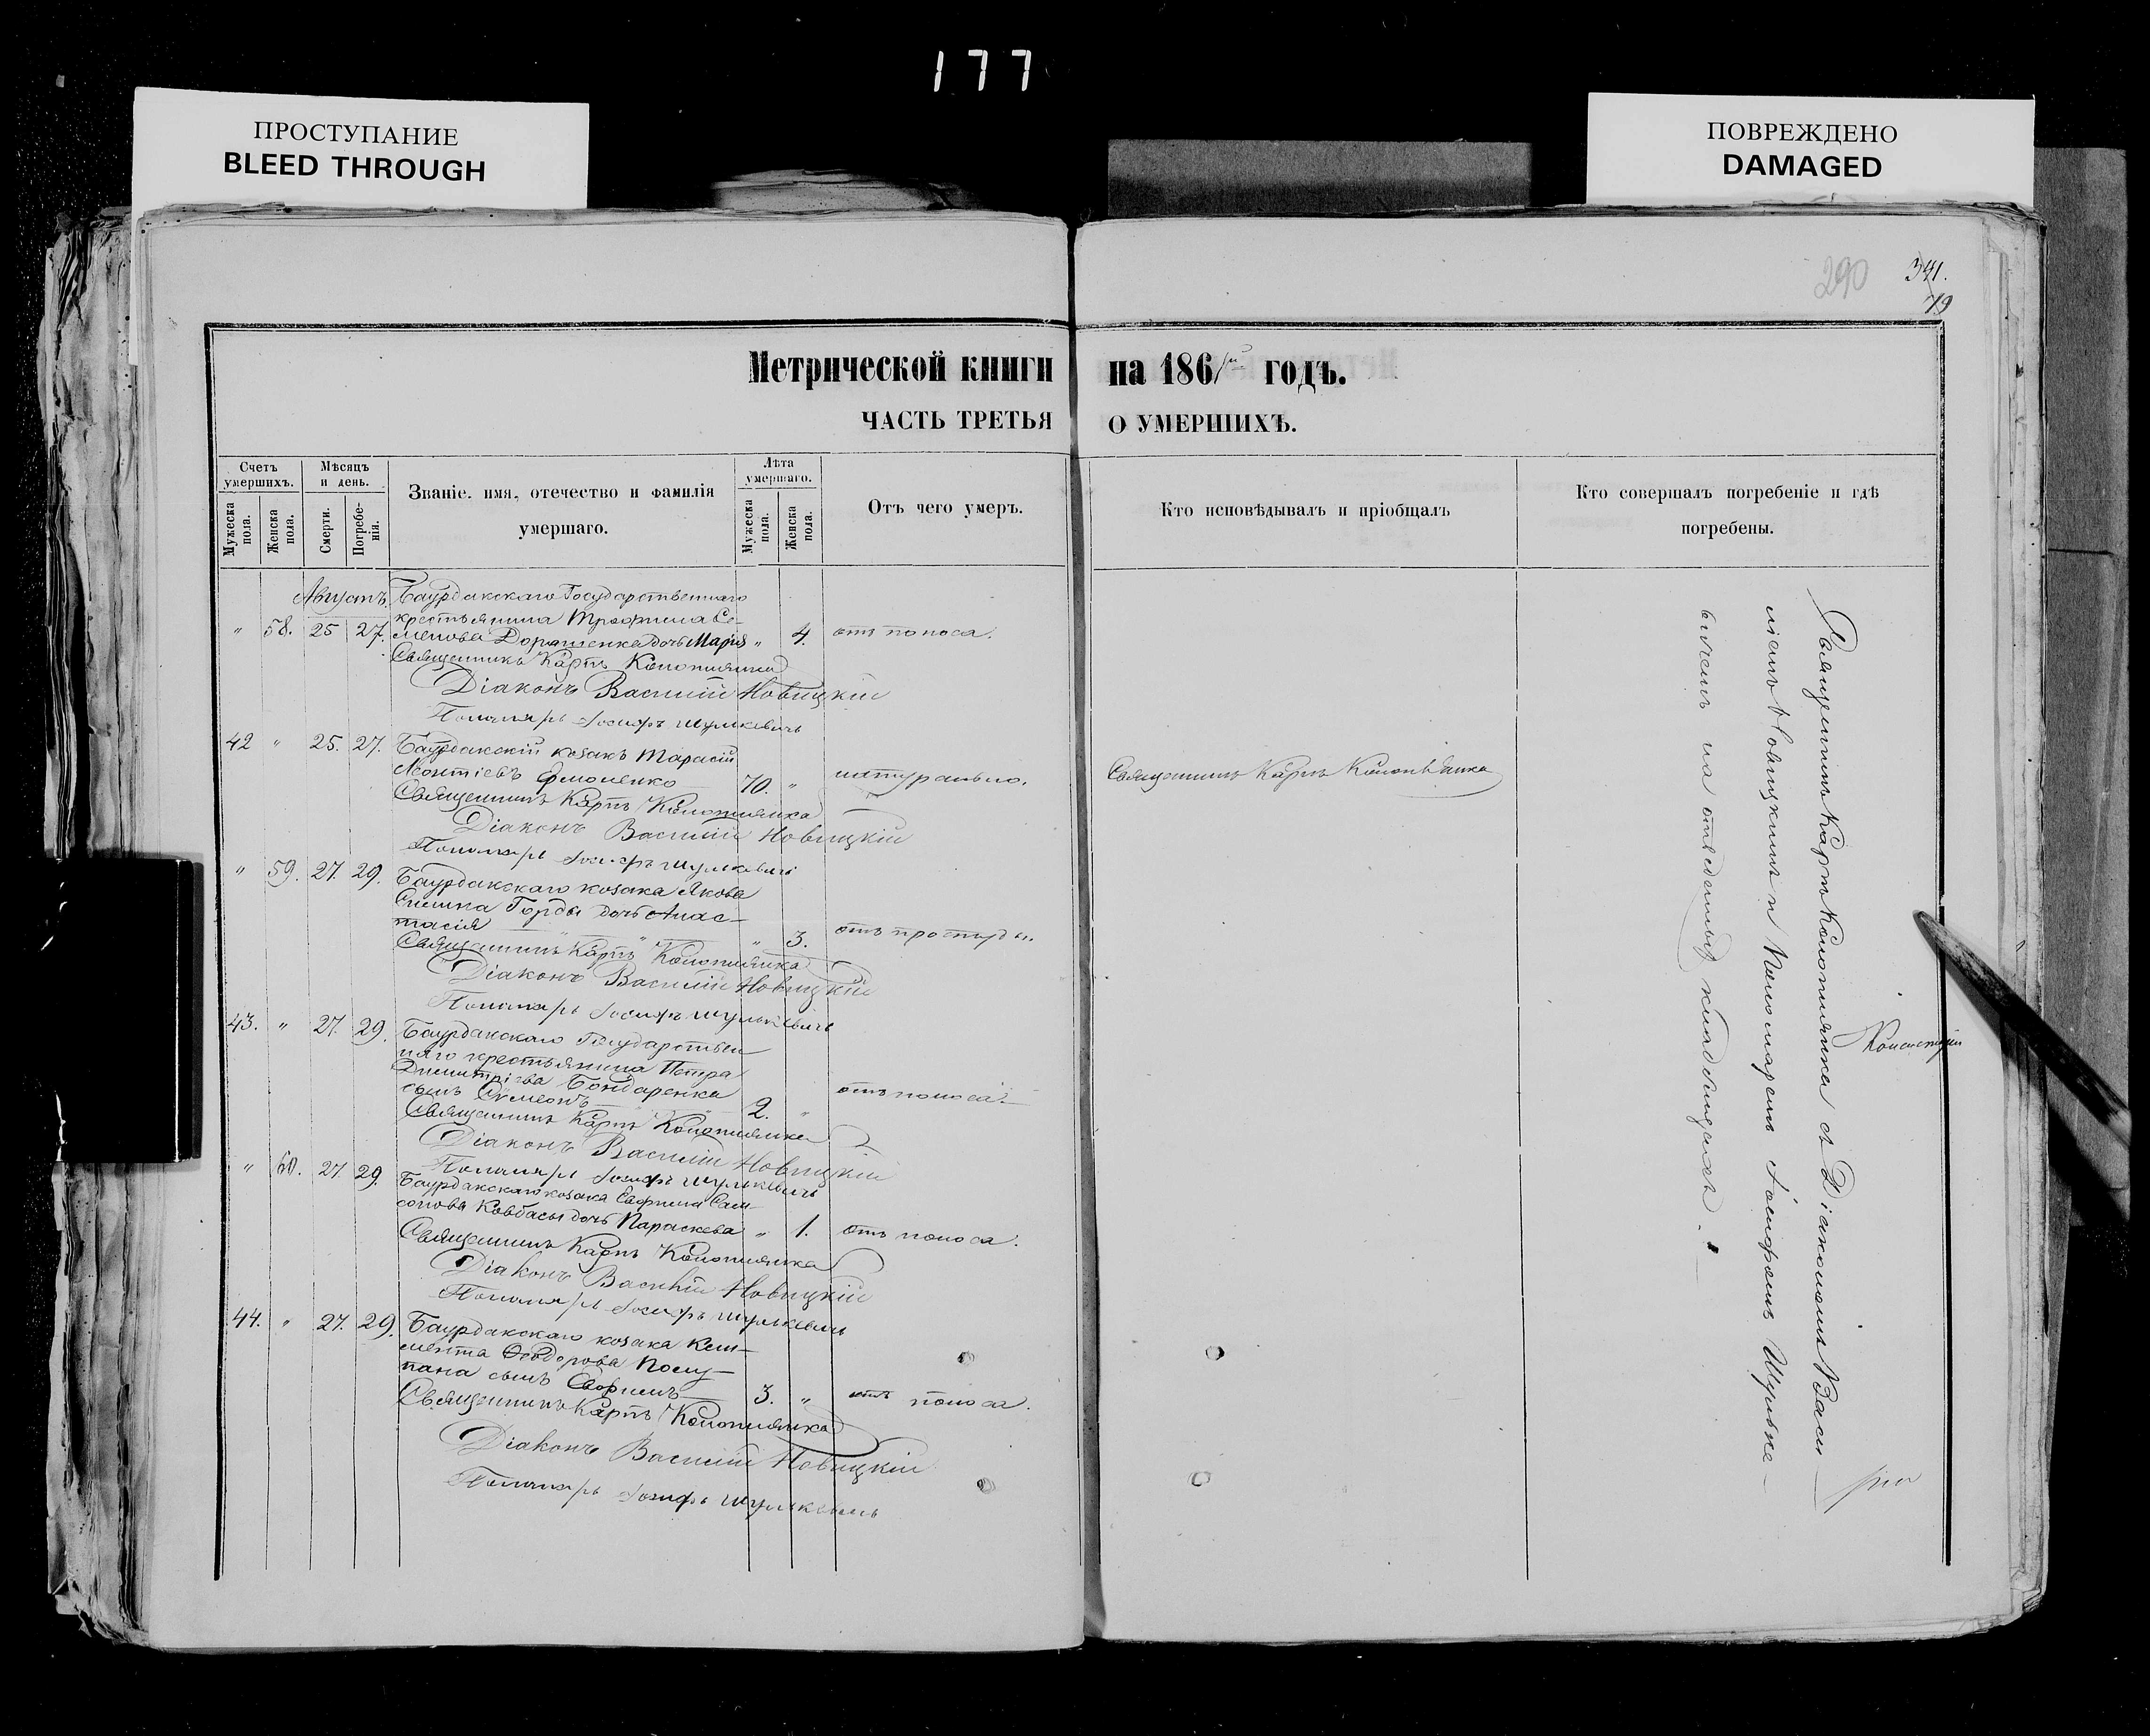 177
ПРОСТУПАНИЕ
BLEED THROUGH
ПОВРЕЖДЕНО
DAMAGED
290
341.
79
Метрической книги на 1861й годъ.
ЧАСТЬ ТРЕТЬЯ О УМЕРШИХЪ.
Счетъ умершихъ.
Мужеска пола.
Женска пола.
Мѣсяцъ и день.
Смерти.
Погребенія.
Званіе, имя, отечество и фамилія умершаго.
Лѣта умершаго.
Мужеска пола.
Женска пола.
Отъ чего умеръ.
Кто исповѣдывалъ и пріобщалъ
Кто совершалъ погребеніе и гдѣ погребены.
Августъ Баурдакскаго Государственнаго
крестьянина Трофима Се-
" 58. 25 27. менова Дорошенка дочь Марія " 4. отъ поноса.
Священникъ Карпъ Колотнянка
Діаконъ Василій Новицкій
Пономарь Іосифъ Шулькевичъ
42 " 25. 27. Баурдакскій козакъ Тарасій
Леонтіевъ 70. " натурально. Священникъ Карпъ
Священникъ Карпъ Колотнянка
Діаконъ Василій Новицкій
Пономарь Іосифъ Шулькевичъ
" 59. 27. 29. Баурдакскаго козака Якова
Горды дочь Анас-
тасія " 3. отъ простуды.
Священникъ Карпъ Колотнянка
Діаконъ Василій Новицкій
Пономарь Іосифъ Шулькевичъ
43. " 27. 29. Баурдакскаго Государствен
наго крестьянина Петра
Димитріева Бондаренка
сынъ Симеонъ 2. " отъ поноса.
Священникъ Карпъ Колотнянка
Діаконъ Василій Новицкій
Пономарь Іосифъ Шулькевичъ
" 60. 27. 29. Баурдакскаго козака Евфима Сам-
сонова Ковбасы дочь Параскева " 1. отъ поноса.
Священникъ Карпъ Колотнянка
Діаконъ Василій Новицкій
Пономарь Іосифъ Шулькевичъ
44. " 27. 29. Баурдакскаго козака Кли-
мента Ѳеодорова
сынъ Евфимъ 3. " отъ поноса.
Священникъ Карпъ Колотнянка
Діаконъ Василій Новицкій
Пономарь Іосифъ Шулькевичъ
Священникъ Карпъ Колотнянка съ Діакономъ Васи-
ліемъ Новицкимъ и Пономаремъ Іосифомъ Шульке-
вичемъ на отведенномъ кладбищѣ.